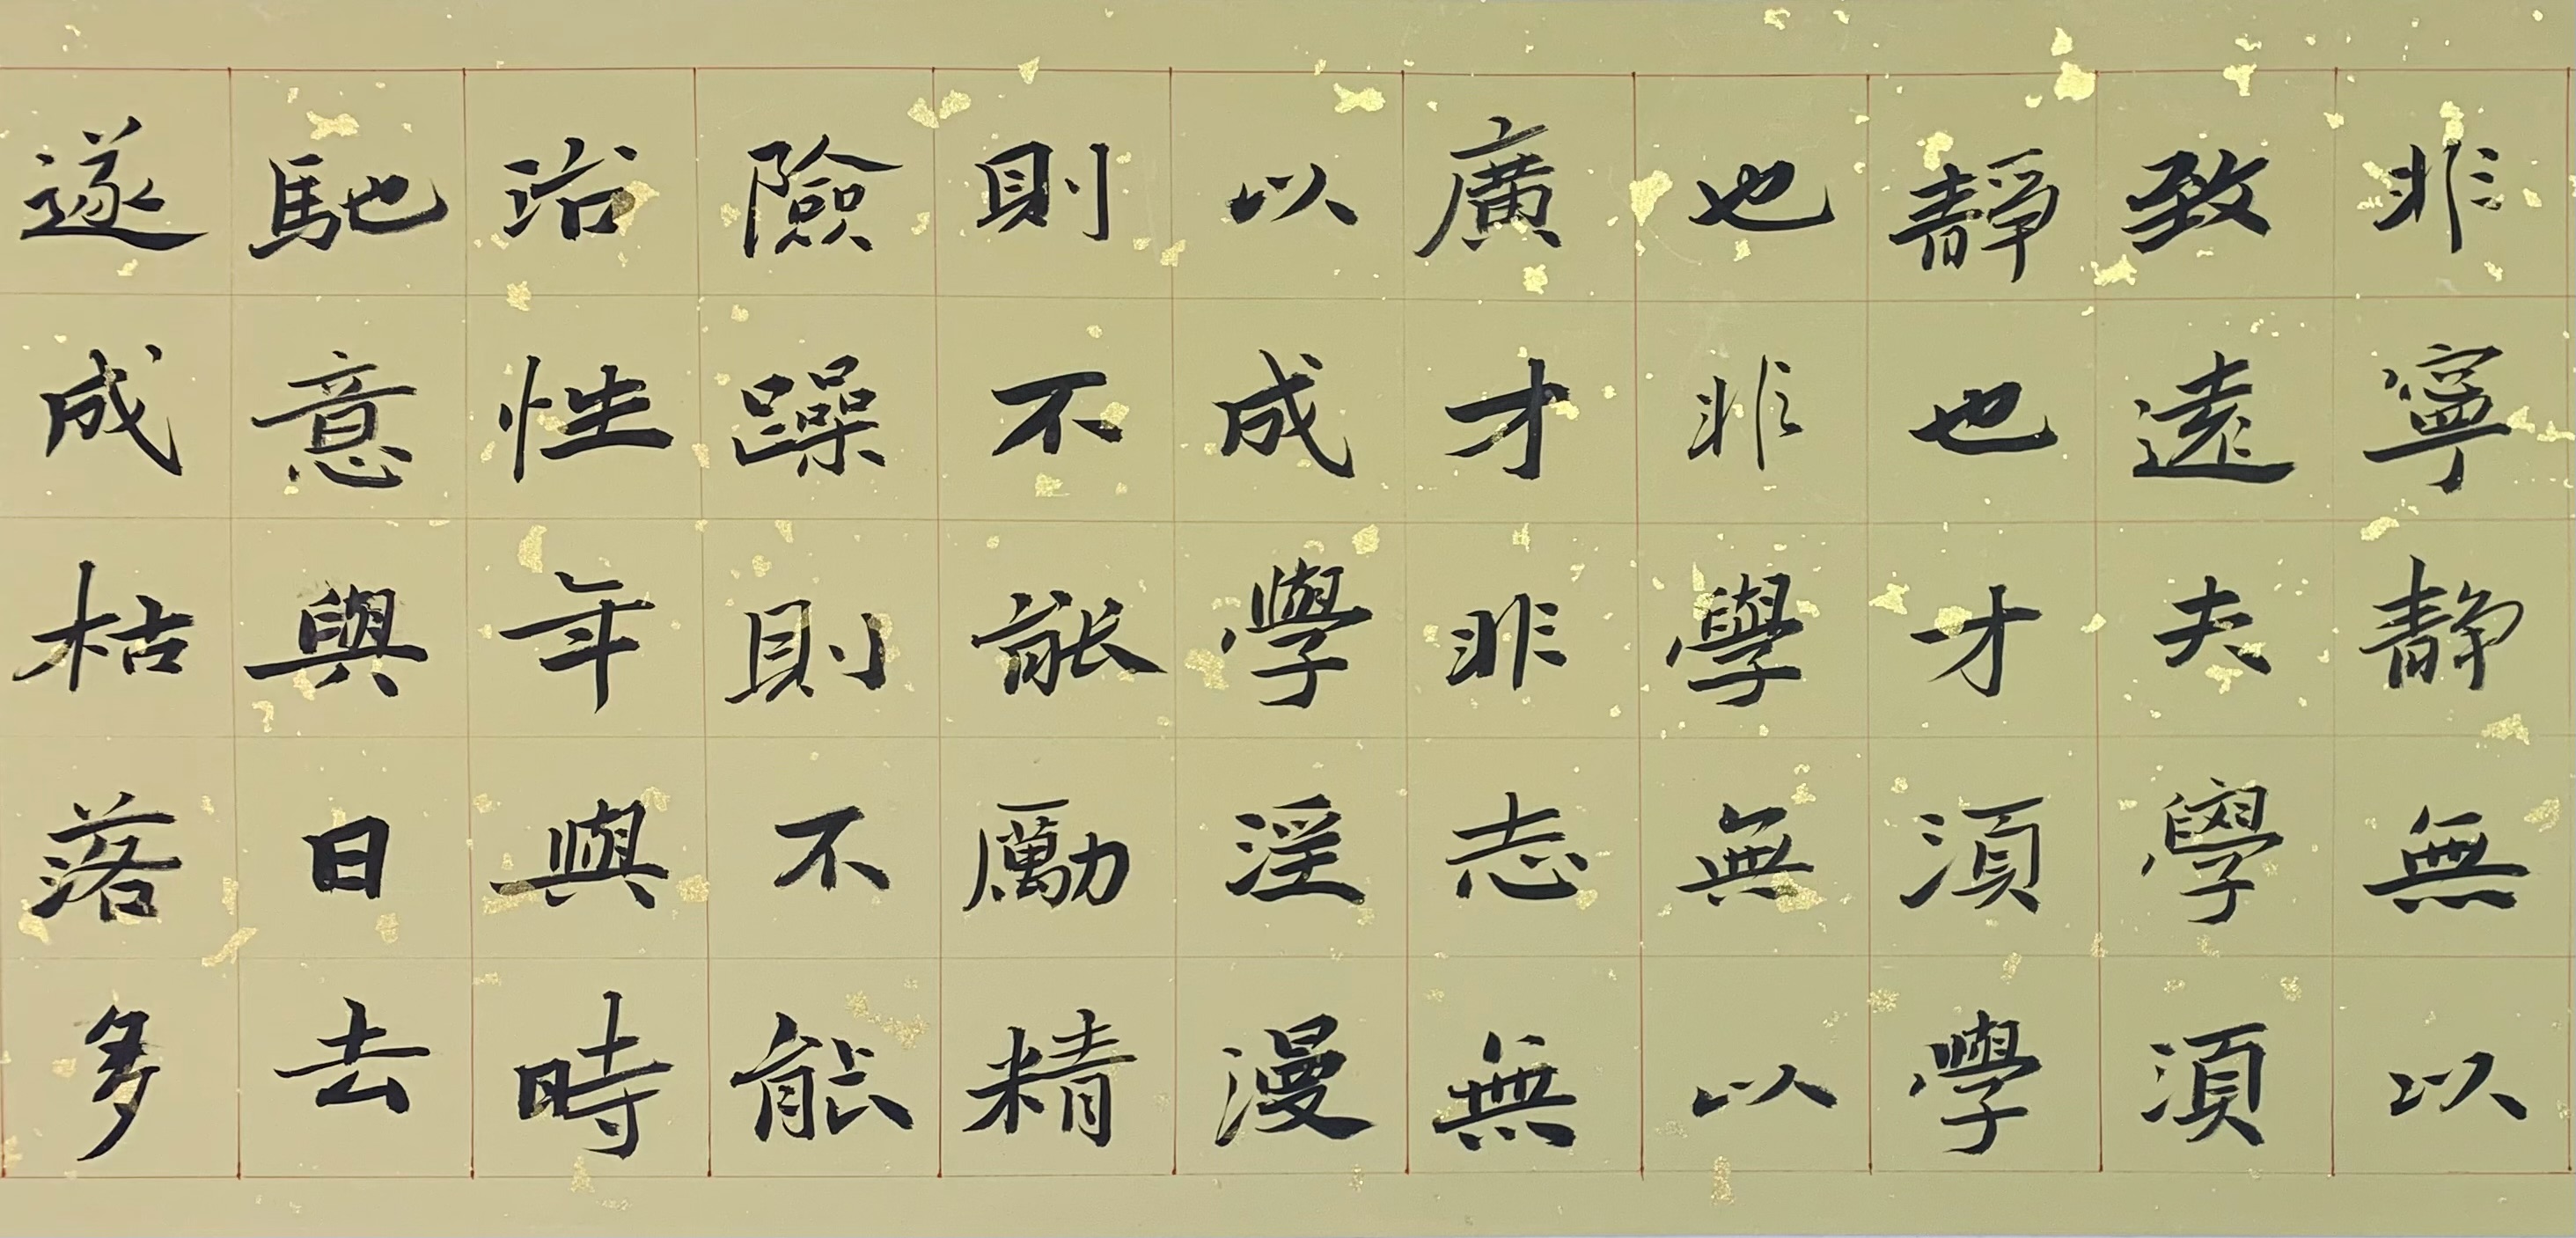 非寧靜無以
致遠夫學須
靜也才須學
也非學無以
廣才非志無
以成學淫漫
則不能勵精
險躁則不能
治性年與時
馳意與日去
遂成枯落多